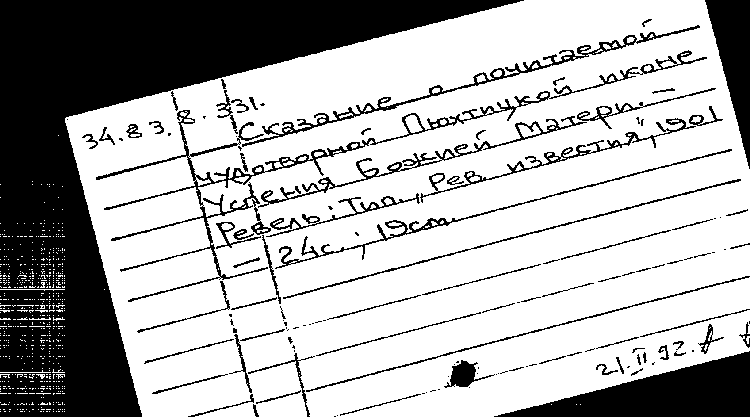 34.83.8.331.
Сказание о почитаемой
чудотворной Пюхтицкой иконе
Успения Божией Матери. –
Ревель: Тип. „Рев. известия", 1901
– 24с.; 19см.
21.II.92.